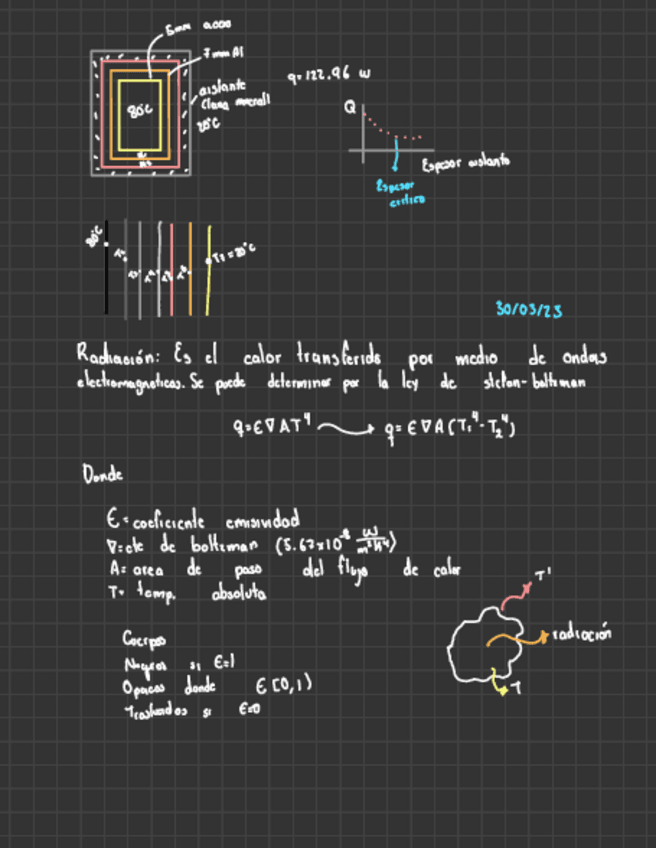 5mm acero
7mm Al
aislante
(lana mineral)
20°C
80°C
q=122.96 w
Q
Espesor aislante
Espesor
critico
80°C
T₇=20°C
30/03/23
Radiación: Es el calor transferido por medio de ondas
electromagneticas. Se puede determinar por la ley de stefan-boltzman
q=Є∇AT⁴ → q=Є∇A(T₁⁴-T₂⁴)
Donde
Є=coeficiente emisividad
∇=cte de boltzman (5.67x10⁻⁸ W/m²K⁴)
A=area de paso del flujo de calor
T= temp. absoluta
T'
radiación
T
Cuerpos
Negros si Є=1
Opacos donde Є[0,1)
si Є=0